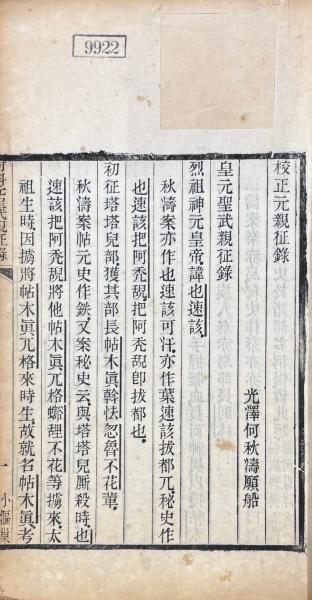 9922
校正元親征錄
光澤何秋濤願船
皇元聖武親征錄
烈祖神元皇帝諱也速該
秋濤案亦作也速該可汗亦作葉速該拔都兀秘史作
也速該把阿禿皃把阿禿皃卽拔都也
初征塔塔兒部獲其部長帖木眞斡怯忽魯不花輩
秋濤案帖元史作鉄又案秘史云與塔塔兒厮殺時也
速該把阿禿皃將他帖木眞兀格豁里不花等擄來太
祖生時因擄將帖木眞兀格來時生故就名帖木眞考
一
小漚巢